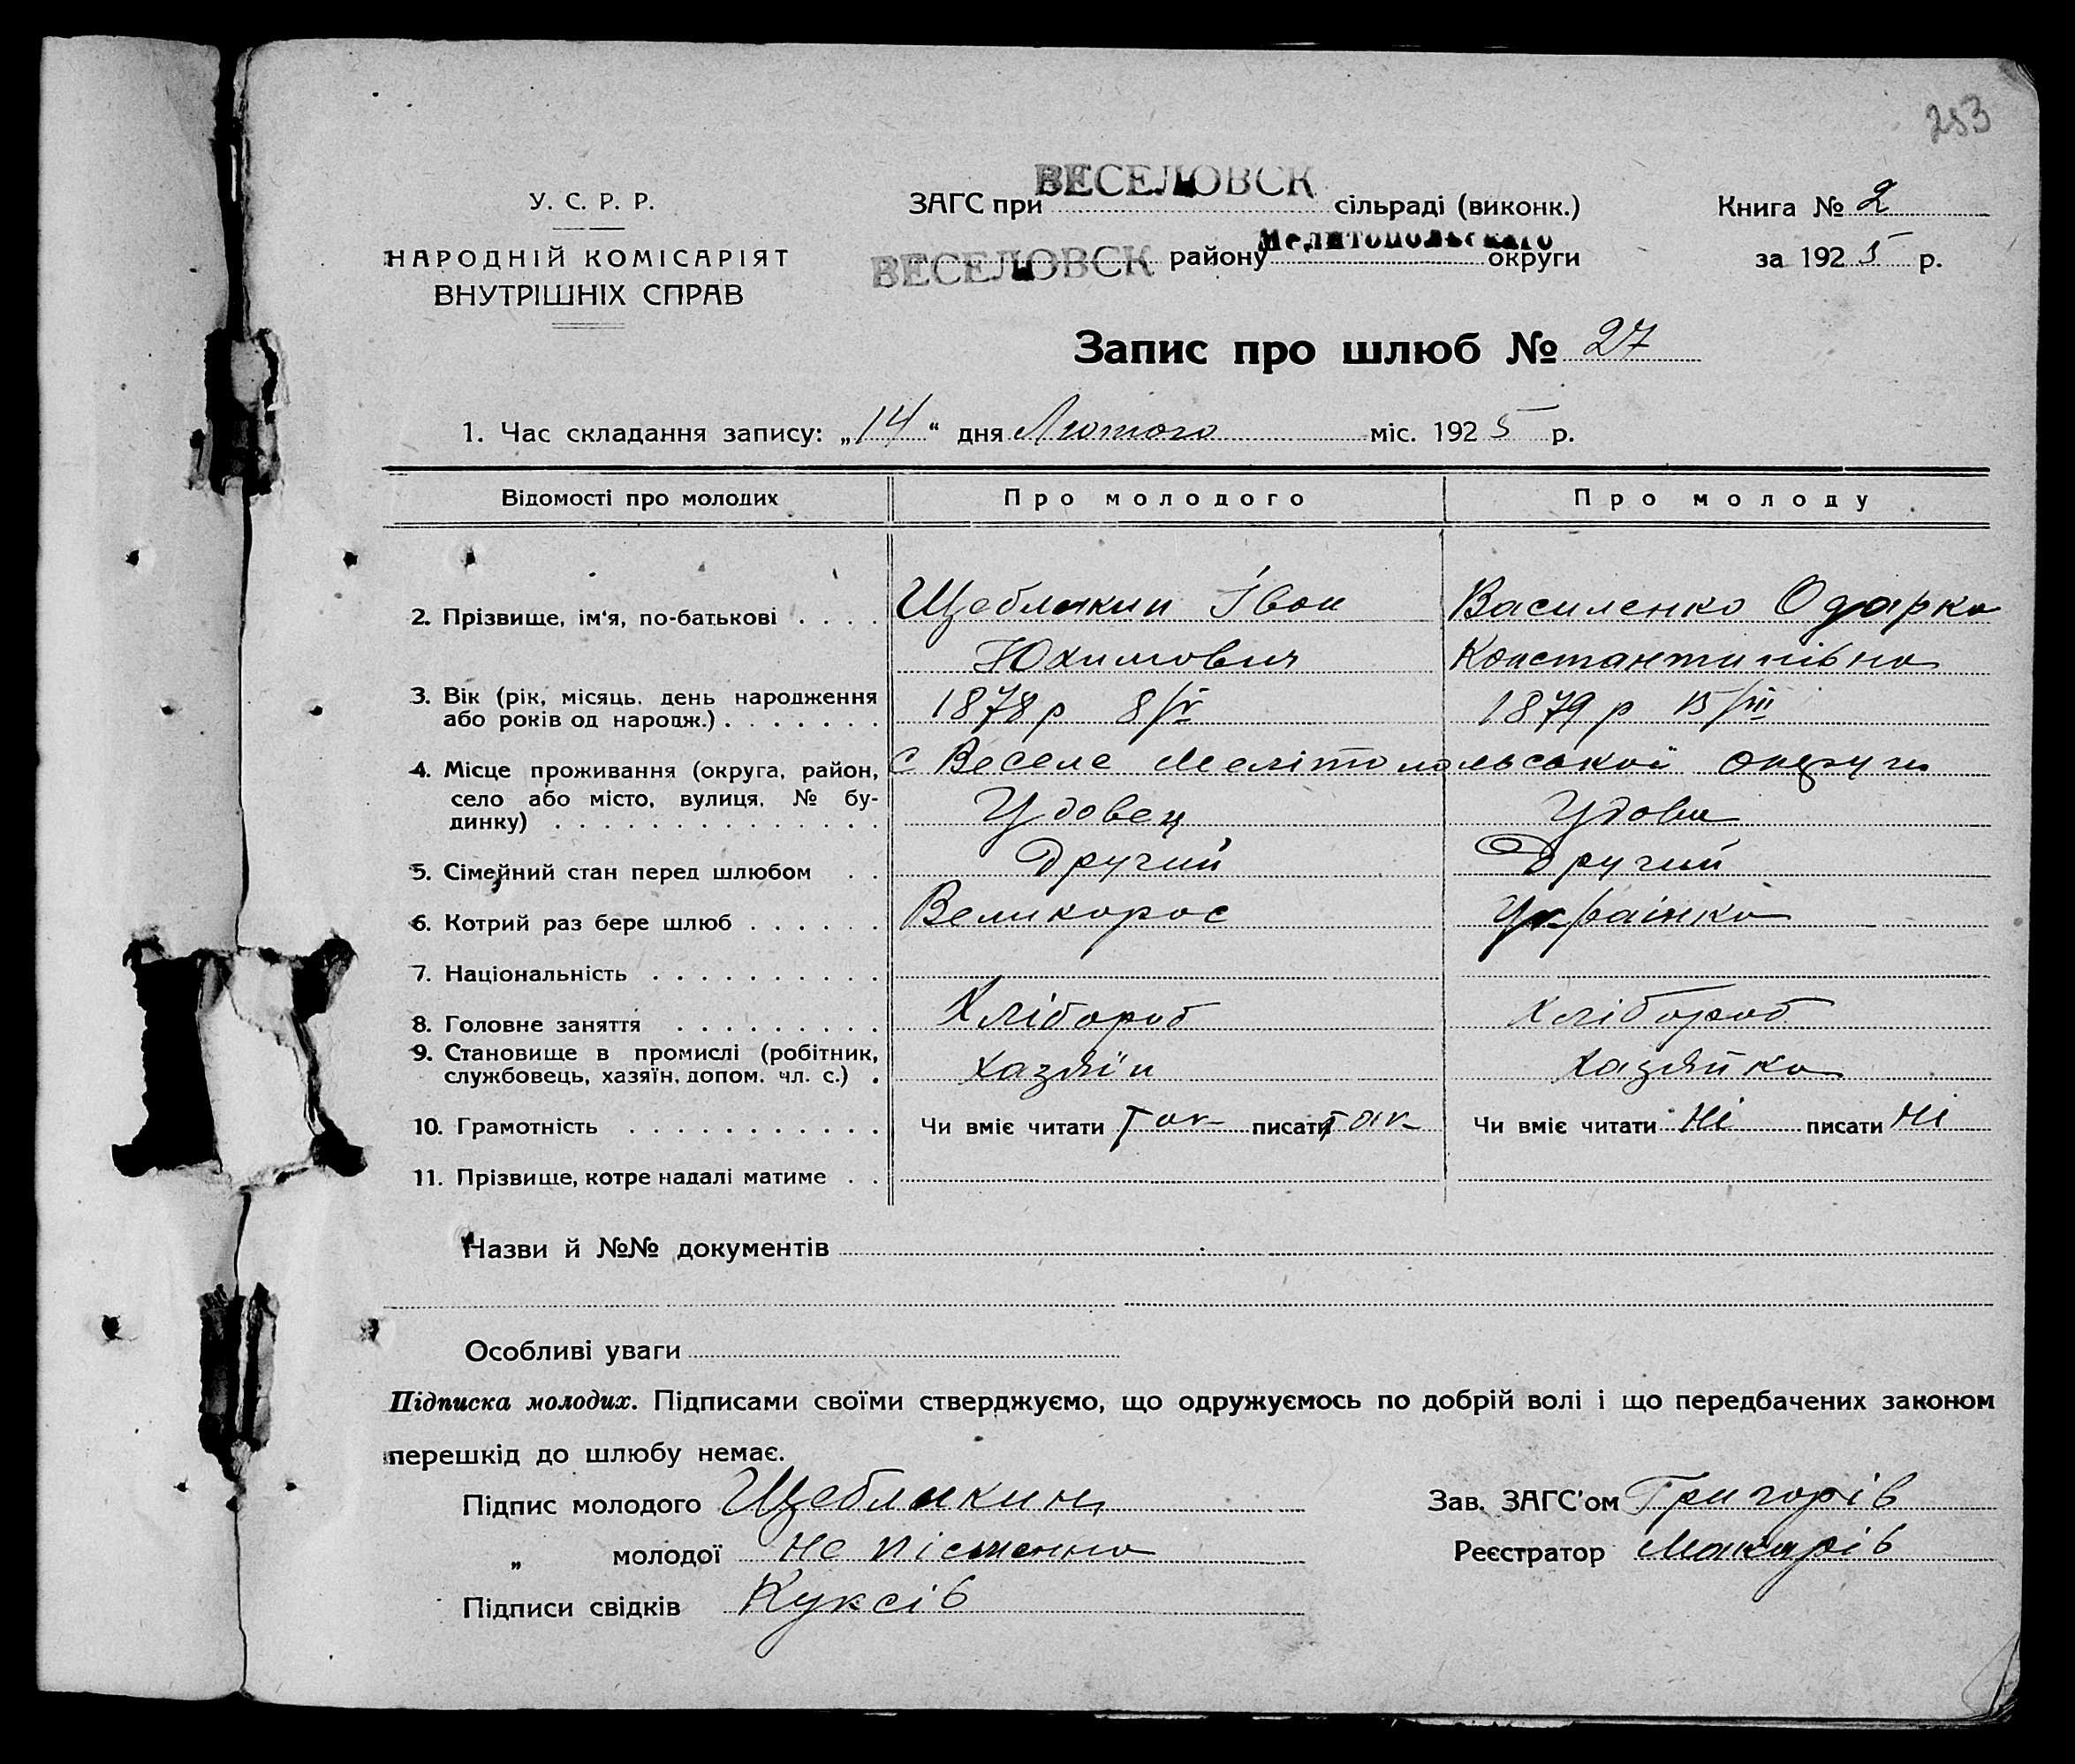 253
У. С. Р. Р.
НАРОДНІЙ КОМІСАРІЯТ
ВНУТРІШНІХ СПРАВ
ЗАГС при ВЕСЕЛОВСК сільраді (виконк.)
ВЕСЕЛОВСК району Мелитопольскаго округи
Книга № 2
за 1925 р.
Запис про шлюб № 27
1. Час складання запису: „14“ дня Лютого міс. 1925 р.
Відомості про молодих Про молодого Про молоду
2. Прізвище, ім‘я, по-батькові . . . . Щеблыкин Іван Василенко Одарка
Юхимович Константинівна
3. Вік (рік, місяць, день народження
або років од народж.) . . . . . . . 1878 р 8/IV 1879 р 15/III
4. Місце проживання (округа, район, с Веселе Мелітопольськой округи
село або місто, вулиця, № бу-
динку) . . . . . . . . . . . . . . Удовец Удова
5. Сімейний стан перед шлюбом . . Другий Другий
6. Котрий раз бере шлюб . . . . . . Великорос Українка
7. Національність . . . . . . . . . .
8. Головне заняття . . . . . . . . . Хлібороб Хлібороб
9. Становище в промислі (робітник,
службовець, хазяїн, допом. чл. с.) . Хазяїн Хазяйка
10. Грамотність . . . . . . . . . . . Чи вміє читати Так писати так Чи вміє читати Ні писати Ні
11. Прізвище, котре надалі матиме . .
Назви й №№ документів
Особливі уваги
Підписка молодих. Підписами своїми стверджуємо, що одружуємось по добрій волі і що передбачених законом
перешкід до шлюбу немає.
Підпис молодого Щеблыкин Зав. ЗАГС'ом Григорів
„ молодої не пісменна Реєстратор Макарів
Підписи свідків Куксів